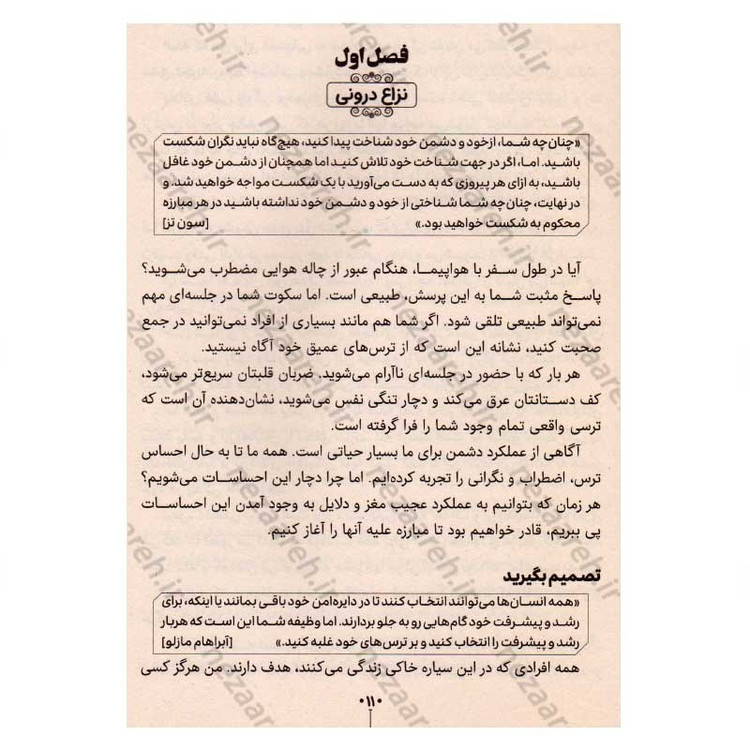 فصل اول
نزاع درونی
«چنان‌چه شما، ازخود و دشمن خود شناخت پیدا کنید، هیچ‌گاه نباید نگران شکست
باشید. اما، اگر در جهت شناخت خود تلاش کنید اما همچنان از دشمن خود غافل
باشید، به ازای هر پیروزی که به دست می‌آورید با یک شکست مواجه خواهید شد. و
در نهایت، چنان چه شما شناختی از خود و دشمن خود نداشته باشید در هر مبارزه
محکوم به شکست خواهید بود.» [سون تز]
آیا در طول سفر با هواپیما، هنگام عبور از چاله هوایی مضطرب می‌شوید؟
پاسخ مثبت شما به این پرسش، طبیعی است. اما سکوت شما در جلسه‌ای مهم
نمی‌تواند طبیعی تلقی شود. اگر شما هم مانند بسیاری از افراد نمی‌توانید در جمع
صحبت کنید، نشانه این است که از ترس‌های عمیق خود آگاه نیستید.
هر بار که با حضور در جلسه‌ای ناآرام می‌شوید. ضربان قلبتان سریع‌تر می‌شود،
کف دستانتان عرق می‌کند و دچار تنگی نفس می‌شوید، نشان‌دهنده آن است که
ترسی واقعی تمام وجود شما را فرا گرفته است.
آگاهی از عملکرد دشمن برای ما بسیار حیاتی است. همه ما تا به حال احساس
ترس، اضطراب و نگرانی را تجربه کرده‌ایم. اما چرا دچار این احساسات می‌شویم؟
هر زمان که بتوانیم به عملکرد عجیب مغز و دلایل به وجود آمدن این احساسات
پی ببریم، قادر خواهیم بود تا مبارزه علیه آنها را آغاز کنیم.
تصمیم بگیرید
«همه انسان‌ها می‌توانند انتخاب کنند تا در دایره‌امن خود باقی بمانند یا اینکه، برای
رشد و پیشرفت خود گام‌هایی رو به جلو بردارند. اما وظیفه شما این است که هربار
رشد و پیشرفت را انتخاب کنید و بر ترس‌های خود غلبه کنید.» [آبراهام مازلو]
همه افرادی که در این سیاره خاکی زندگی می‌کنند، هدف دارند. من هرگز کسی
۱۱
nezaareh.ir